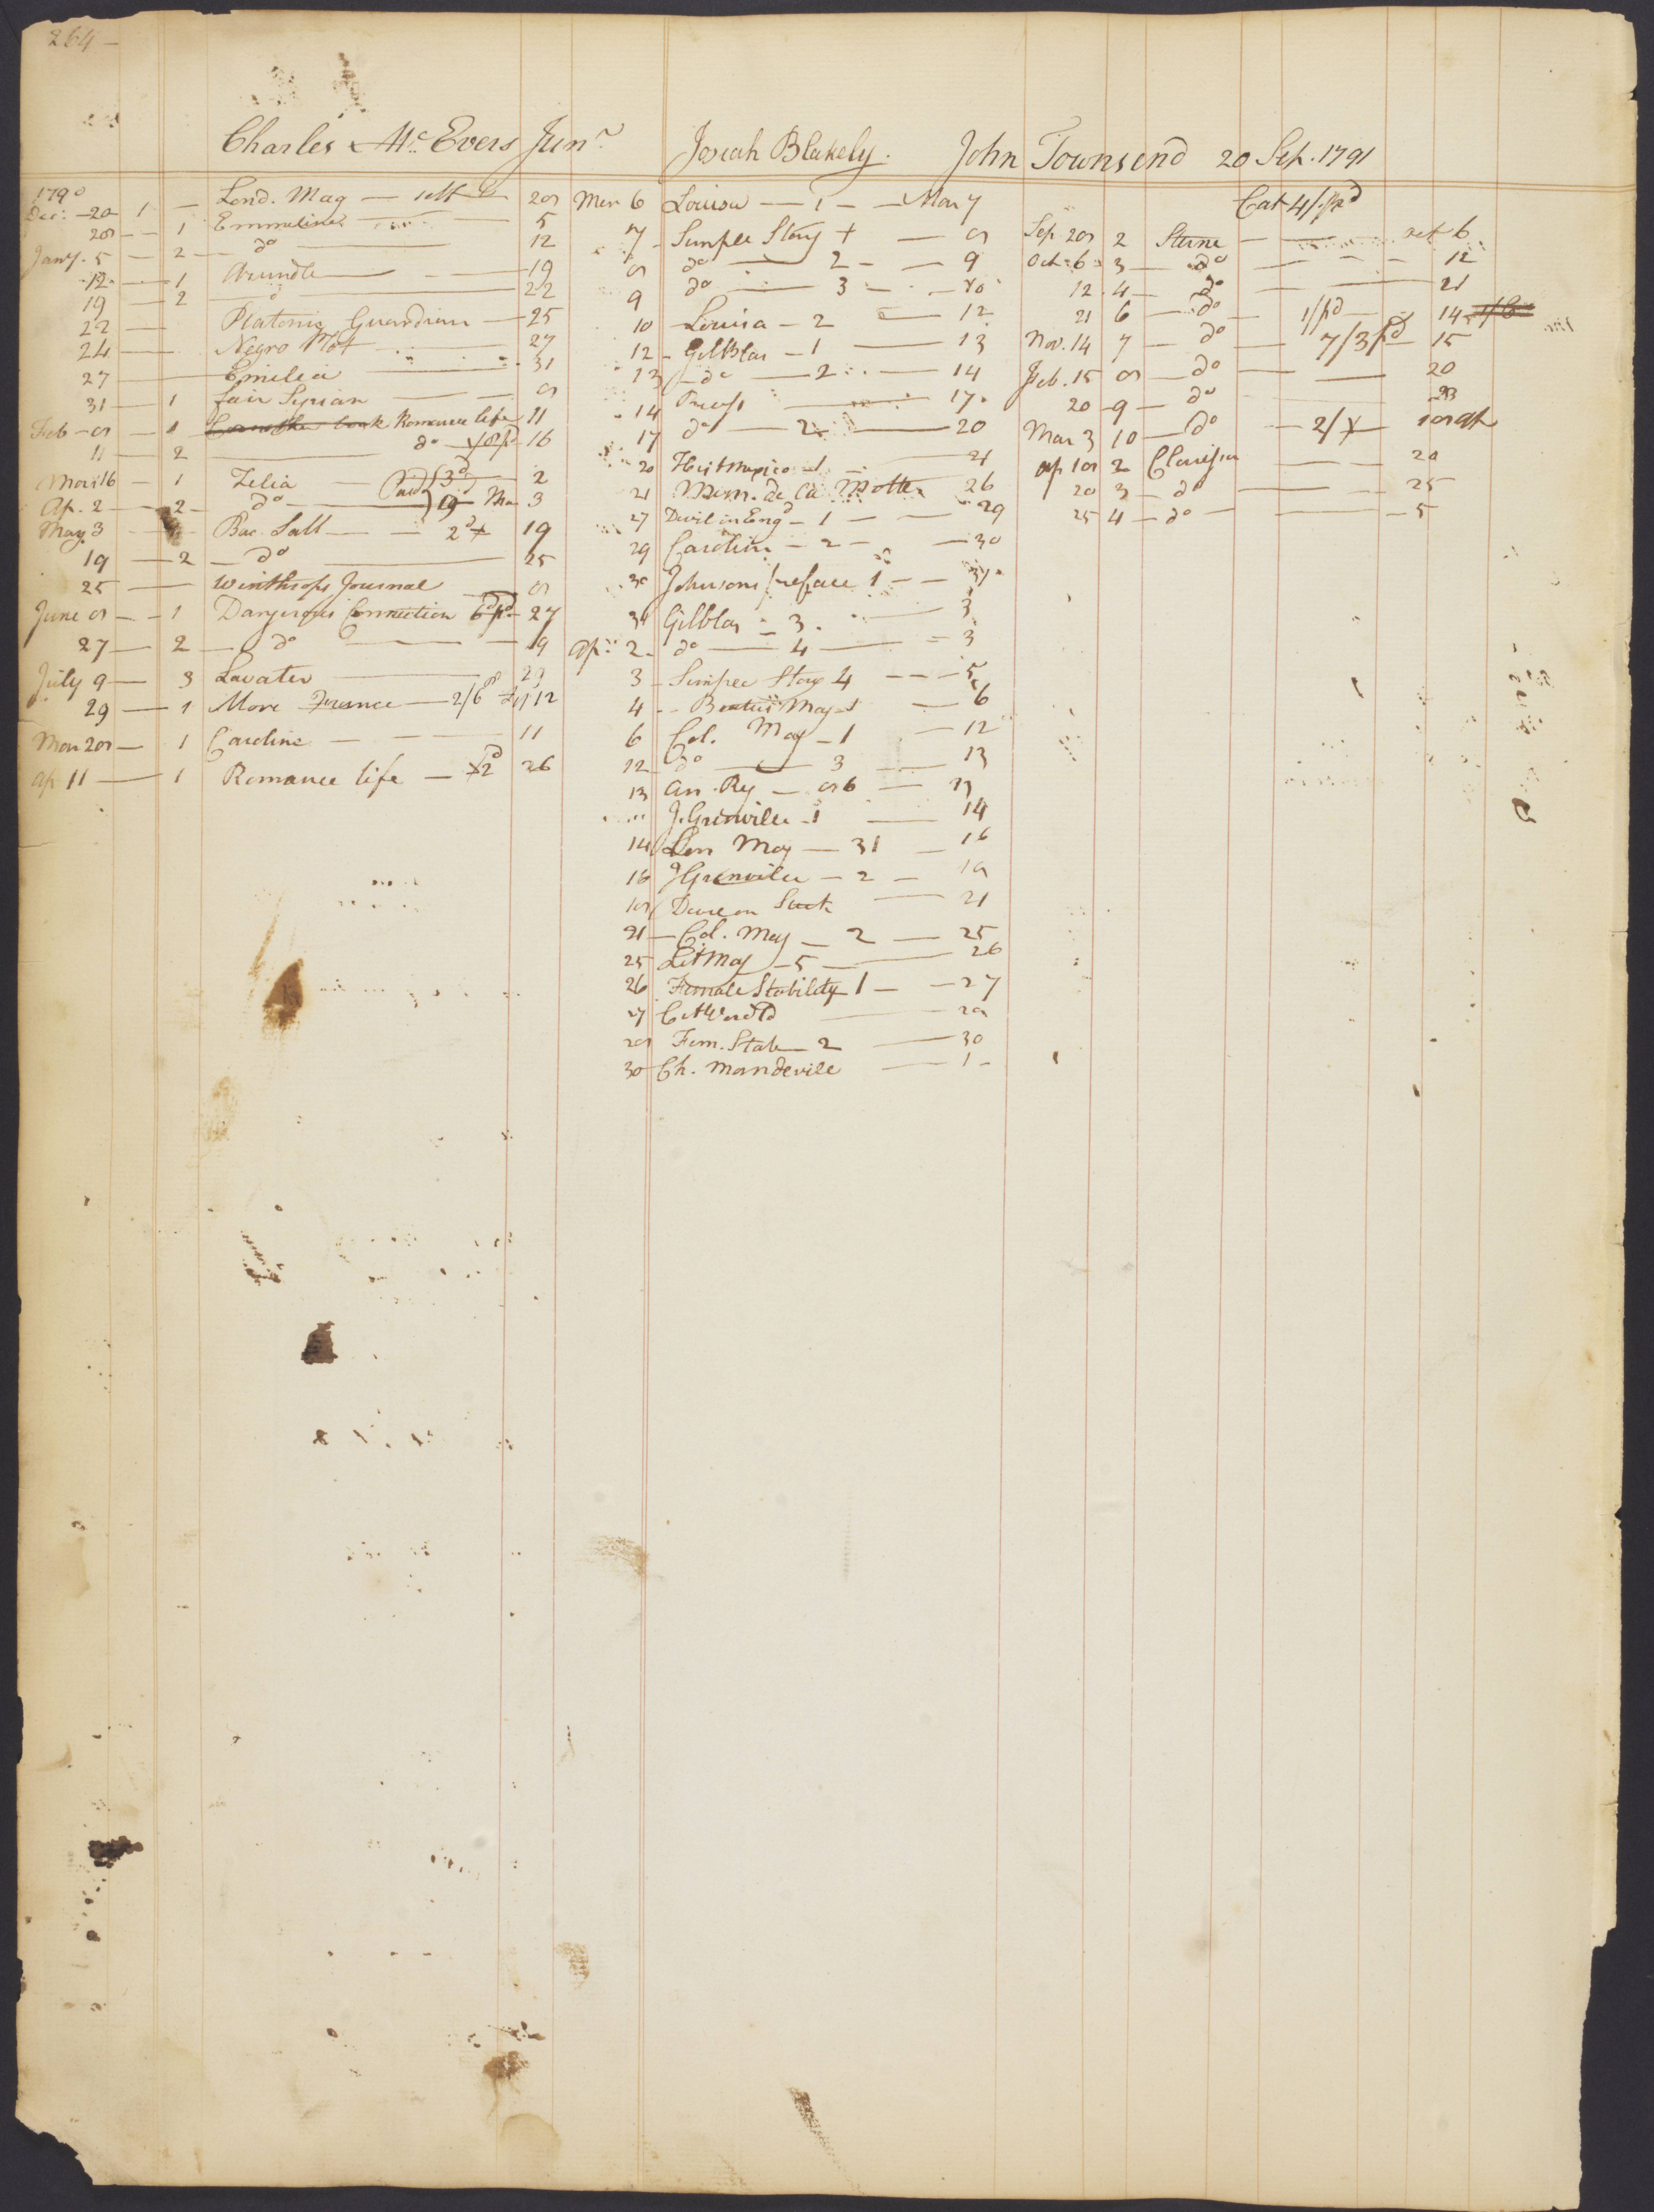 264 —
Charles McEvers Junr
1790
Dec: — 20 1 — Lond. Mag — 28
28 — 1 Emmeline — 5
Jany. 5 — 2 — do — 12
12 — 1 Arundle — 19
19 — 2 — do — 22
22 — Platonic Guardian — 25
24 — Negro Plot — 27
27 — Emilia — 31
31 — 1 fair Syrian — 8
Feb — 8 — 1 Romance life 11
11 — 2 — do — 16
Mar 16 — 1 Zelia — Paid 3d — 2
Ap. 2 — 2 — do — 3
May 3 — Bac. Sall — 2d 19
19 — 2 — do — 25
25 — Winthrops Journal — 8
June 8 — 1 Dangerous Connection 6d pd — 27
27 — 2 — do — 9
July 9 — 3 Lavater — 29
29 — 1 More — 2/6 12
Mar 28 — 1 Caroline — 11
Ap 11 — 1 Romance life — 26
Josiah Blakely.
Mar 6 Louisa — 1 — Mar 7
7 — Simple Story + — 8
8 do — 2 — 9
9 do — 3 — 10
10 — Louisa — 2 — 12
12 — Gil Blas — 1 — 13
13 — do — 2 — 14
14 — 17
17 do — 2 — 20
20 — 1 — 21
21 Mem. de la Motte 26
27 Devil in Engd — 1 — 29
29 Caroline — 2 — 30
30 Johnsons preface 1 — 31
31 Gilblas — 3. — 3
Ap: 2 — do — 4 — 3
3 — Simple Story 4 — 5
4 — Mag — 6
6 Col. Mag — 1 — 12
12 — do — 3 — 13
13 An. Reg — 86 — 13
J. Grenville — 1 — 14
14 Lon Mag — 31 — 16
16 J Grenville — 2 — 18
18 — 21
21 — Col. Mag — 2 — 25
25 Lit Mag — 5 — 26
26 Female Stability 1 — 27
27 Cit World — 28
28 Fem. Stab — 2 — 30
30 Ch. Mandevile — 1 —
John Townsend 20 Sep. 1791
Cat 4/. pd
Sep 28 2 Sterne — oct 6
Oct. 6 3 — do — 12
12 . 4 — do — 21
21 6 — do — 1/ pd — 14
Nov. 14 7 — do — 7/3 pd — 15
Feb. 15 8 — do — 20
20 — 9 — do — 23
Mar 3 10 — do — 2/
ap 18 2 Clarissa — 20
20 3 — do — 25
25 4 — do — 5